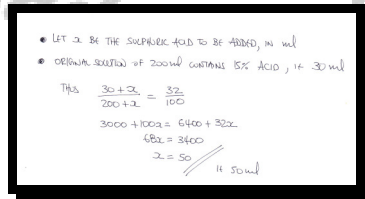 • LET x BE THE SULPHURIC ACID TO BE ADDED, IN ml
• ORIGINAL SOLUTION OF 200ml CONTAINS 15% ACID, IE 30 ml
THUS 30+x / 200+x = 32 / 100
3000 + 100x = 6400 + 32x
68x = 3400
x = 50
IE 50ml